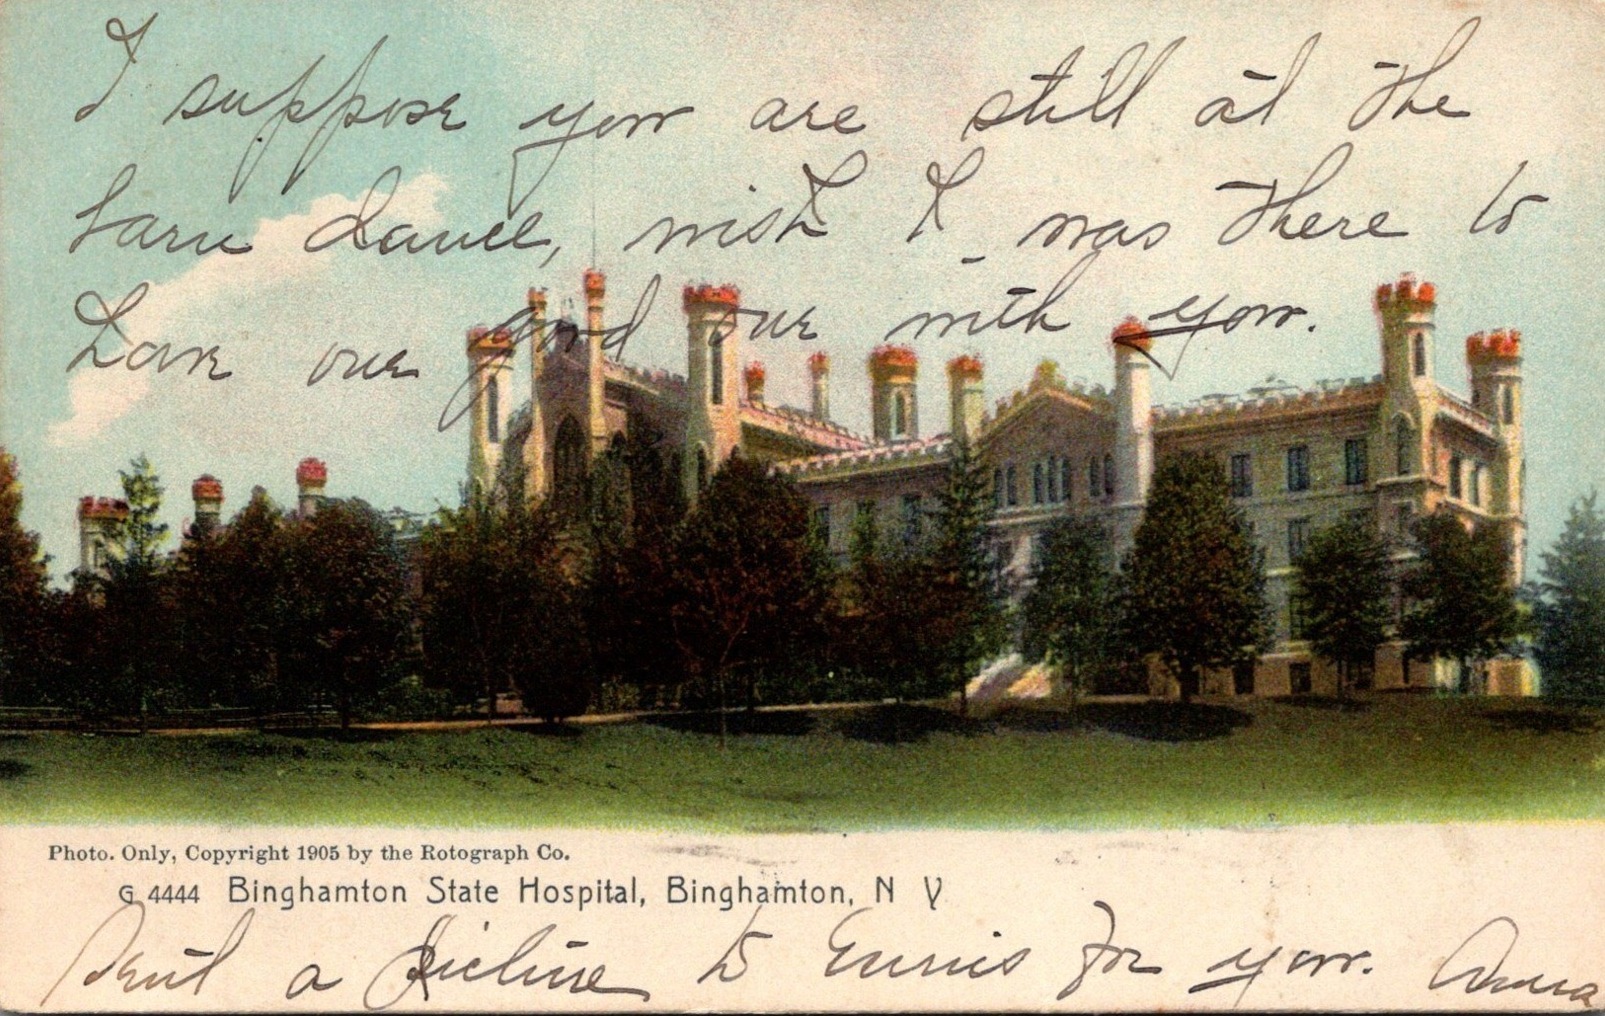 I suppose you are still at the
barn dance, wish I was there to
have one good one with you.
Photo. Only, Copyright 1905 by the Rotograph Co.
G 4444 Binghamton State Hospital, Binghamton, N Y
Sent a picture to Eunis for you. Anna